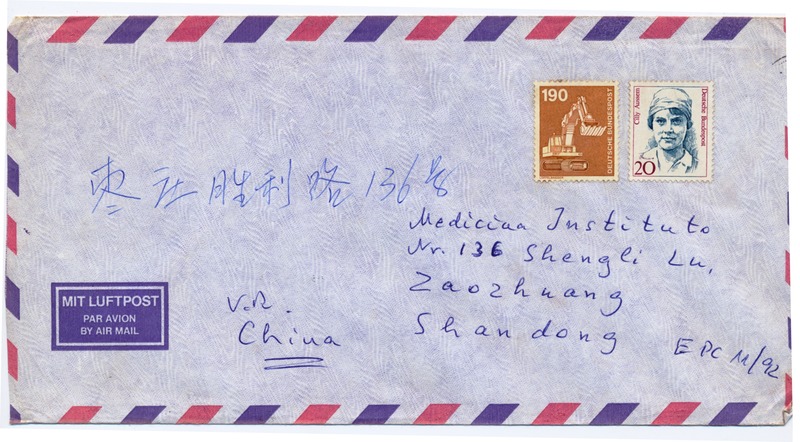 190
DEUTSCHE BUNDESPOST
Cilly Aussem
Deutsche Bundespost
20
枣庄胜利路136号
Medicina Instituto
Nr. 136 Shengli Lu,
Zaozhuang
Shandong
EPC M/92
V.R.
China
MIT LUFTPOST
PAR AVION
BY AIR MAIL